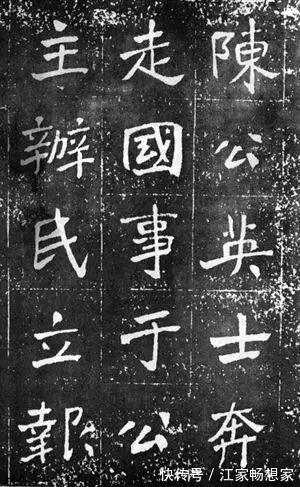 陳公英士奔
走國事于公
主辦民立報
快传号／江家畅想家